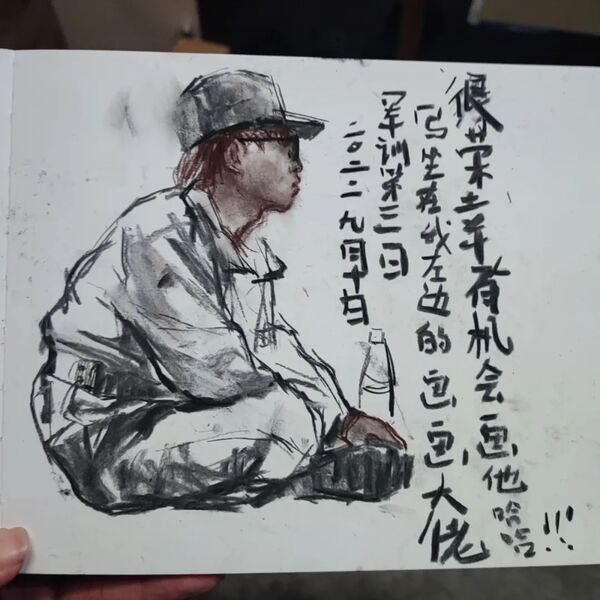 很荣幸有机会画他哈哈!!!
写生在我左边的画画大佬
军训第三日
二〇二二九月十日